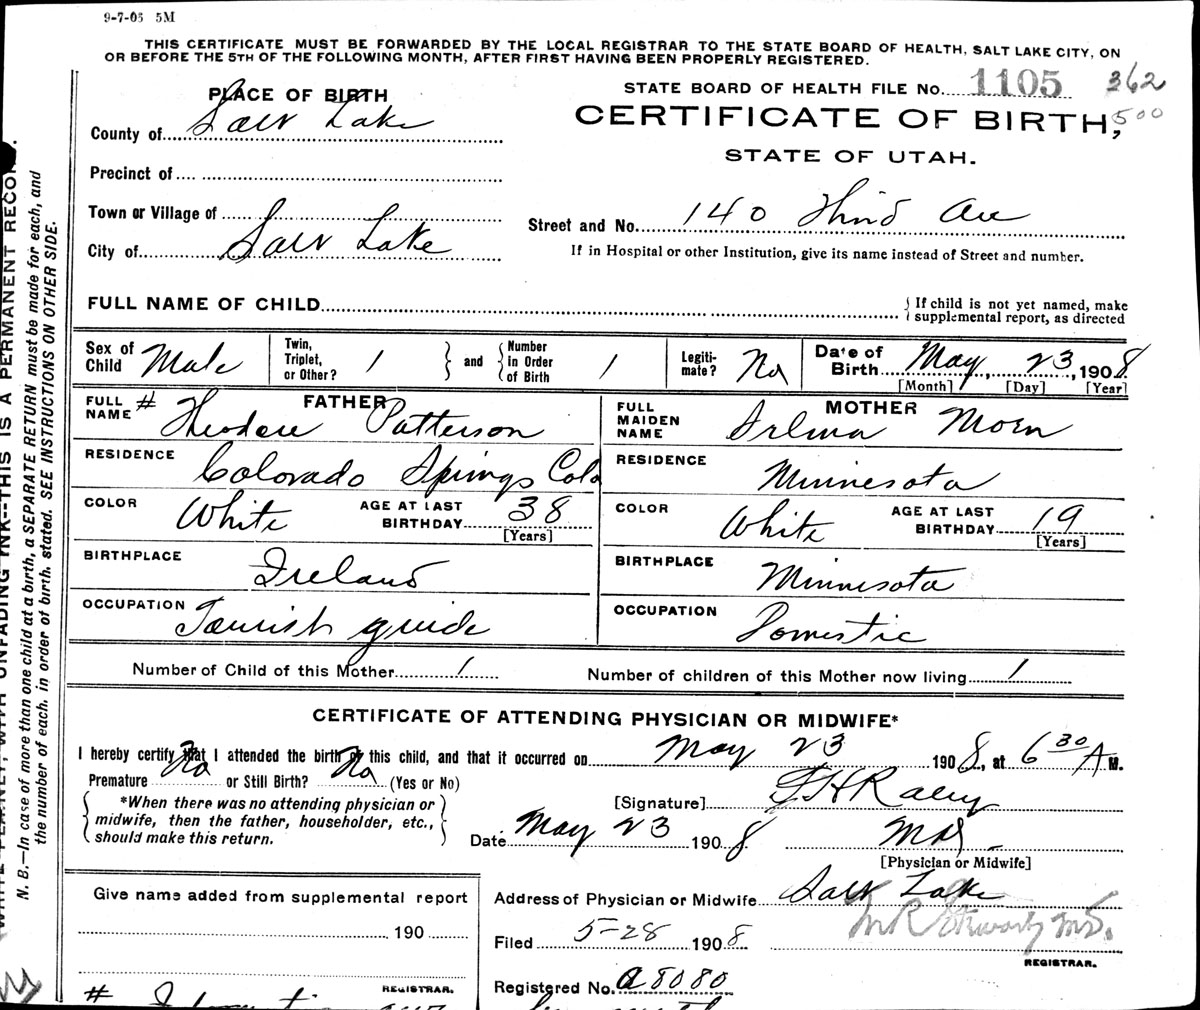 9-7-06 5M
THIS CERTIFICATE MUST BE FORWARDED BY THE LOCAL REGISTRAR TO THE STATE BOARD OF HEALTH, SALT LAKE CITY, ON
OR BEFORE THE 5TH OF THE FOLLOWING MONTH, AFTER FIRST HAVING BEEN PROPERLY REGISTERED.
PLACE OF BIRTH
County of Salt Lake
Precinct of
Town or Village of
City of Salt Lake
STATE BOARD OF HEALTH FILE No. 1105 362
CERTIFICATE OF BIRTH, 500
STATE OF UTAH.
Street and No. 140 Third Ave
If in Hospital or other Institution, give its name instead of Street and number.
FULL NAME OF CHILD
If child is not yet named, make
supplemental report, as directed
Sex of Child Male
Twin, Triplet, or Other? 1
and
Number in Order of Birth 1
Legiti-mate? No
Date of Birth May 23, 1908
[Month] [Day] [Year]
FATHER
FULL NAME # Theodore Patterson
RESIDENCE Colorado Springs Colo
COLOR White
AGE AT LAST BIRTHDAY 38
[Years]
BIRTHPLACE Ireland
OCCUPATION Tourist guide
MOTHER
FULL MAIDEN NAME Moen
RESIDENCE Minnesota
COLOR White
AGE AT LAST BIRTHDAY 19
[Years]
BIRTHPLACE Minnesota
OCCUPATION Domestic
Number of Child of this Mother 1
Number of children of this Mother now living 1
CERTIFICATE OF ATTENDING PHYSICIAN OR MIDWIFE*
I hereby certify that I attended the birth of this child, and that it occurred on May 23 1908, at 6 30 A M.
Premature No or Still Birth? No (Yes or No)
*When there was no attending physician or
midwife, then the father, householder, etc.,
should make this return.
[Signature]
Date May 23 1908
MD.
[Physician or Midwife]
Give name added from supplemental report
190
REGISTRAR.
Address of Physician or Midwife Salt Lake
Filed 5-28 1908
M.D.
REGISTRAR.
Registered No. a8080
#
WITH UNFADING INK--THIS IS A PERMANENT RECORD.
N. B.—In case of more than one child at a birth, a SEPARATE RETURN must be made for each, and
the number of each, in order of birth, stated. SEE INSTRUCTIONS ON OTHER SIDE.